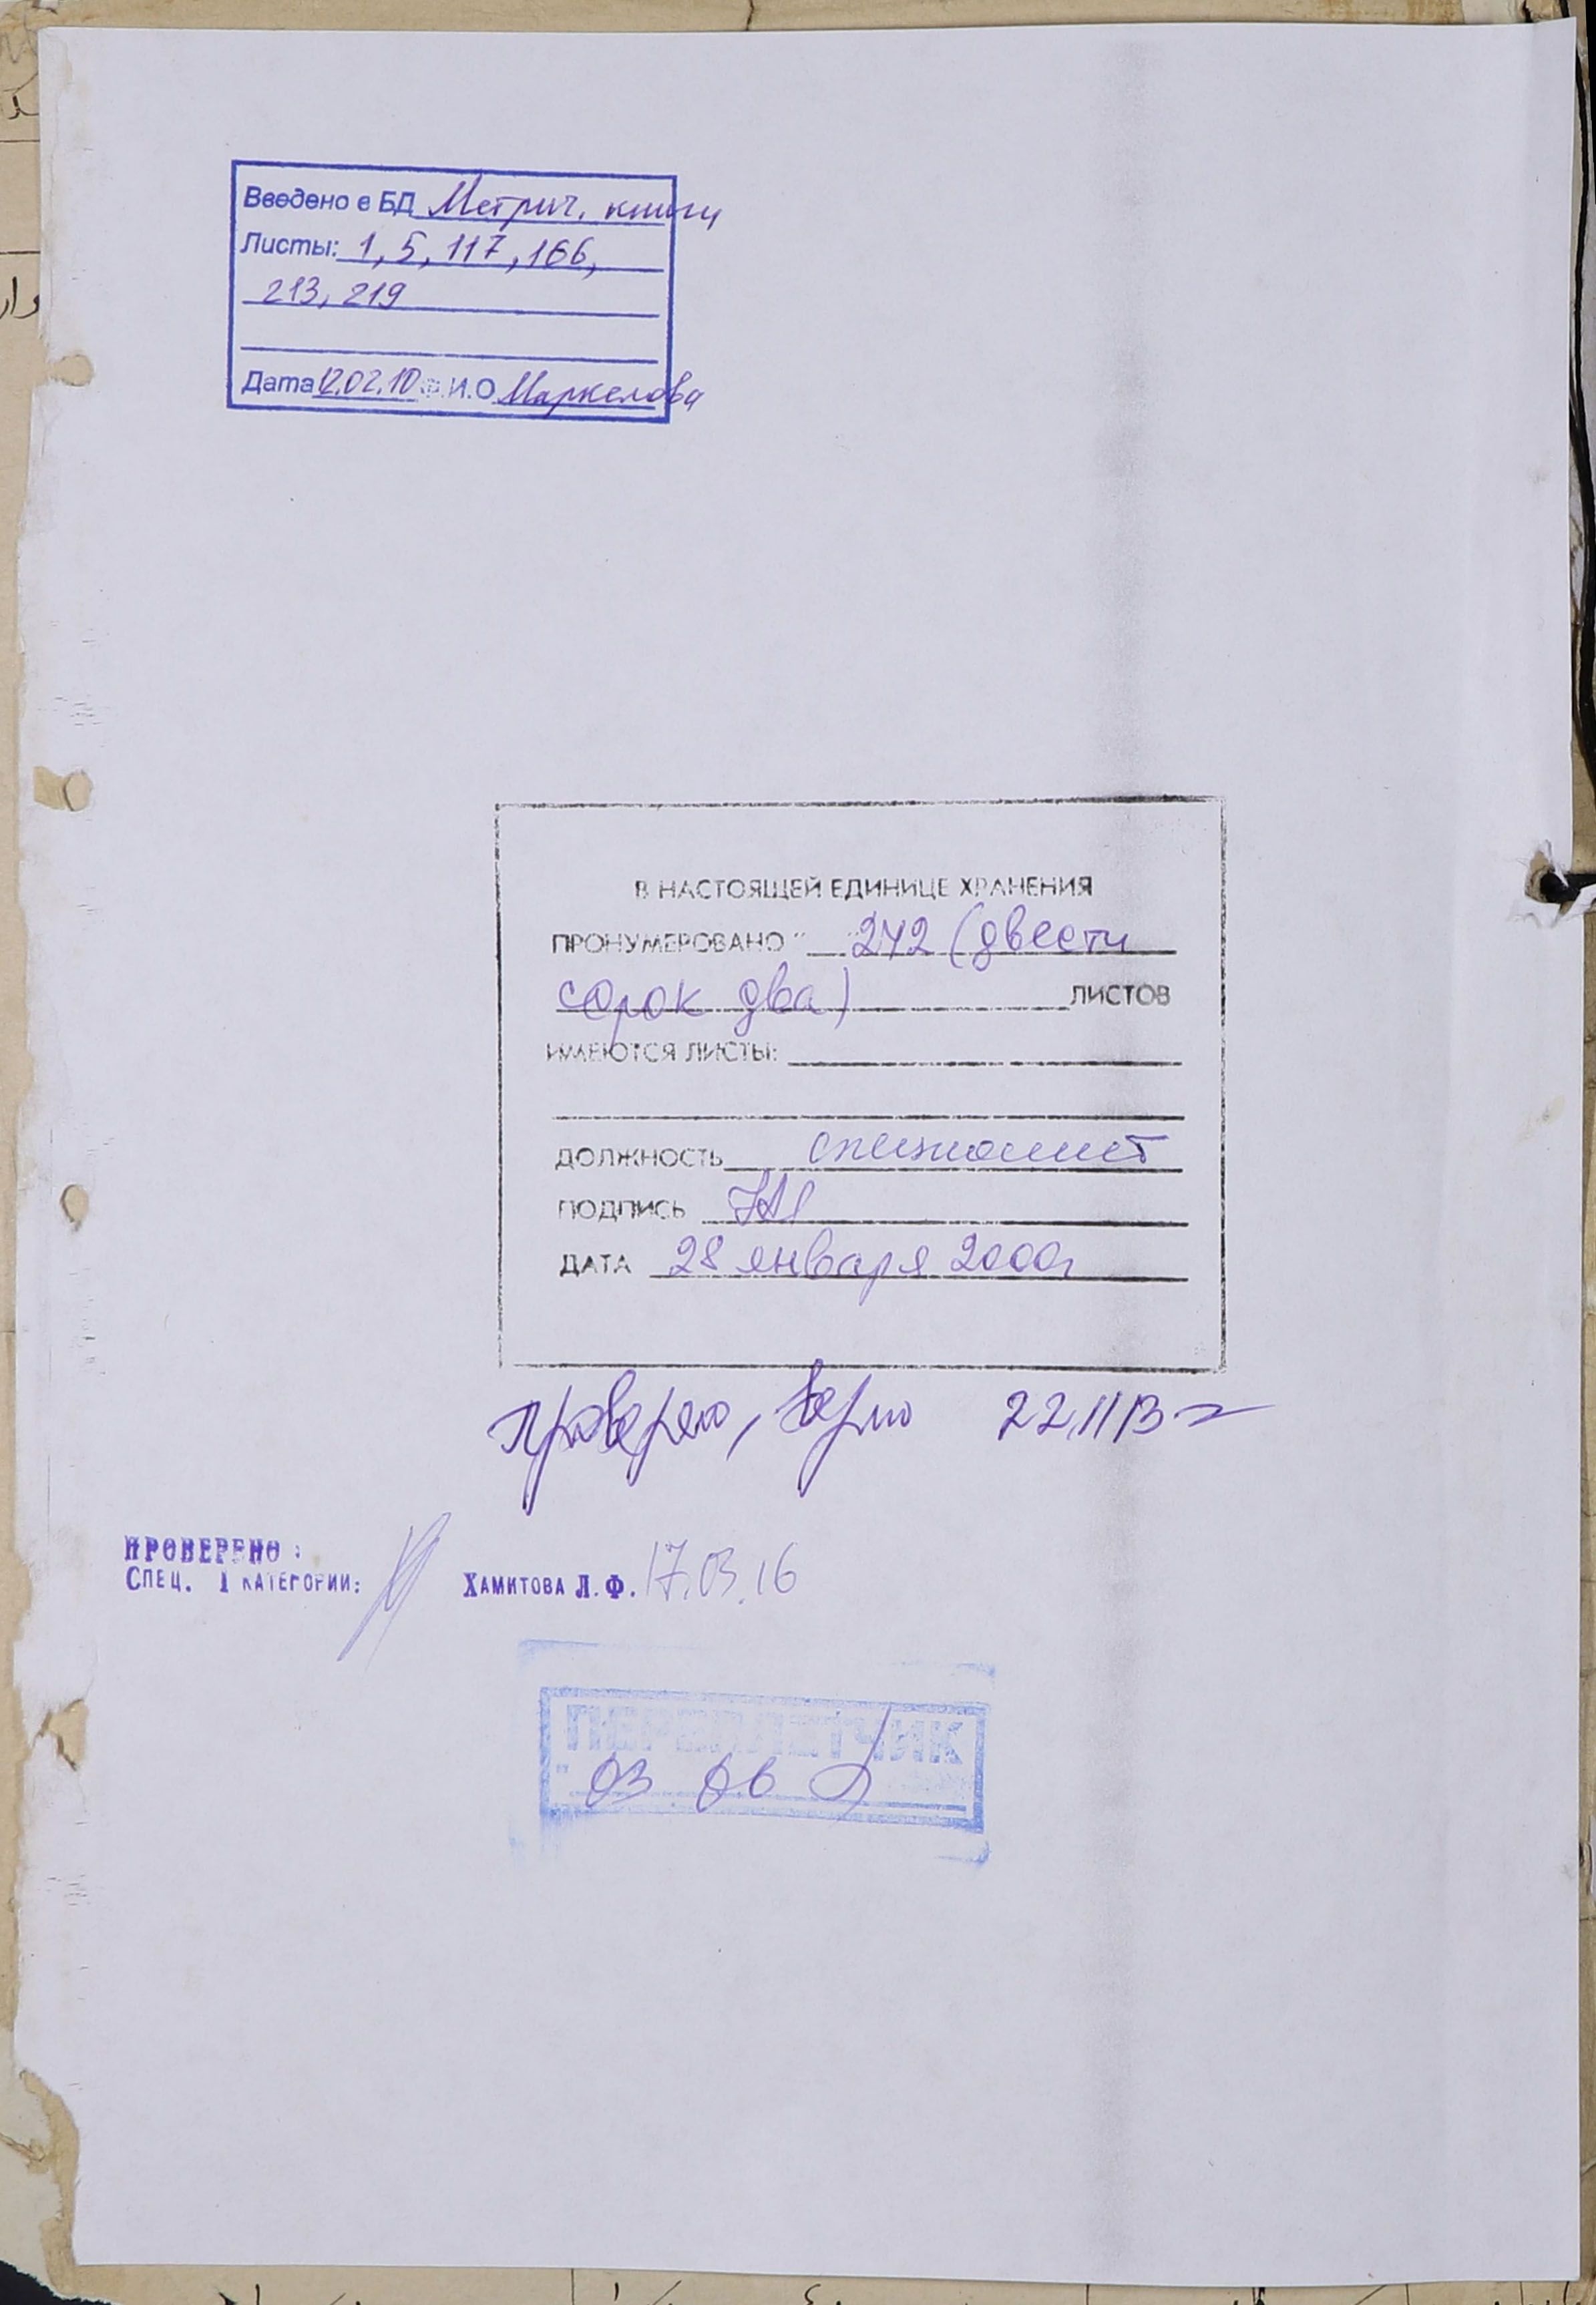 Введено в БД Метрич. книги
Листы: 1, 5, 117, 166,
213, 219
Дата 12.02.10 Ф.И.О Маркелова
В НАСТОЯЩЕЙ ЕДИНИЦЕ ХРАНЕНИЯ
ПРОНУМЕРОВАНО " 242 (двести
сорок два) ЛИСТОВ
ИМЕЮТСЯ ЛИСТЫ:
ДОЛЖНОСТЬ специалист
ПОДПИСЬ
ДАТА 28 января 2000г
Проверено, верно 22.11.13 г
ПРОВЕРЕНО:
СПЕЦ. 1 КАТЕГОРИИ: ХАМИТОВА Л.Ф. 17.03.16
ПЕРЕПЛЕТЧИК
03 06